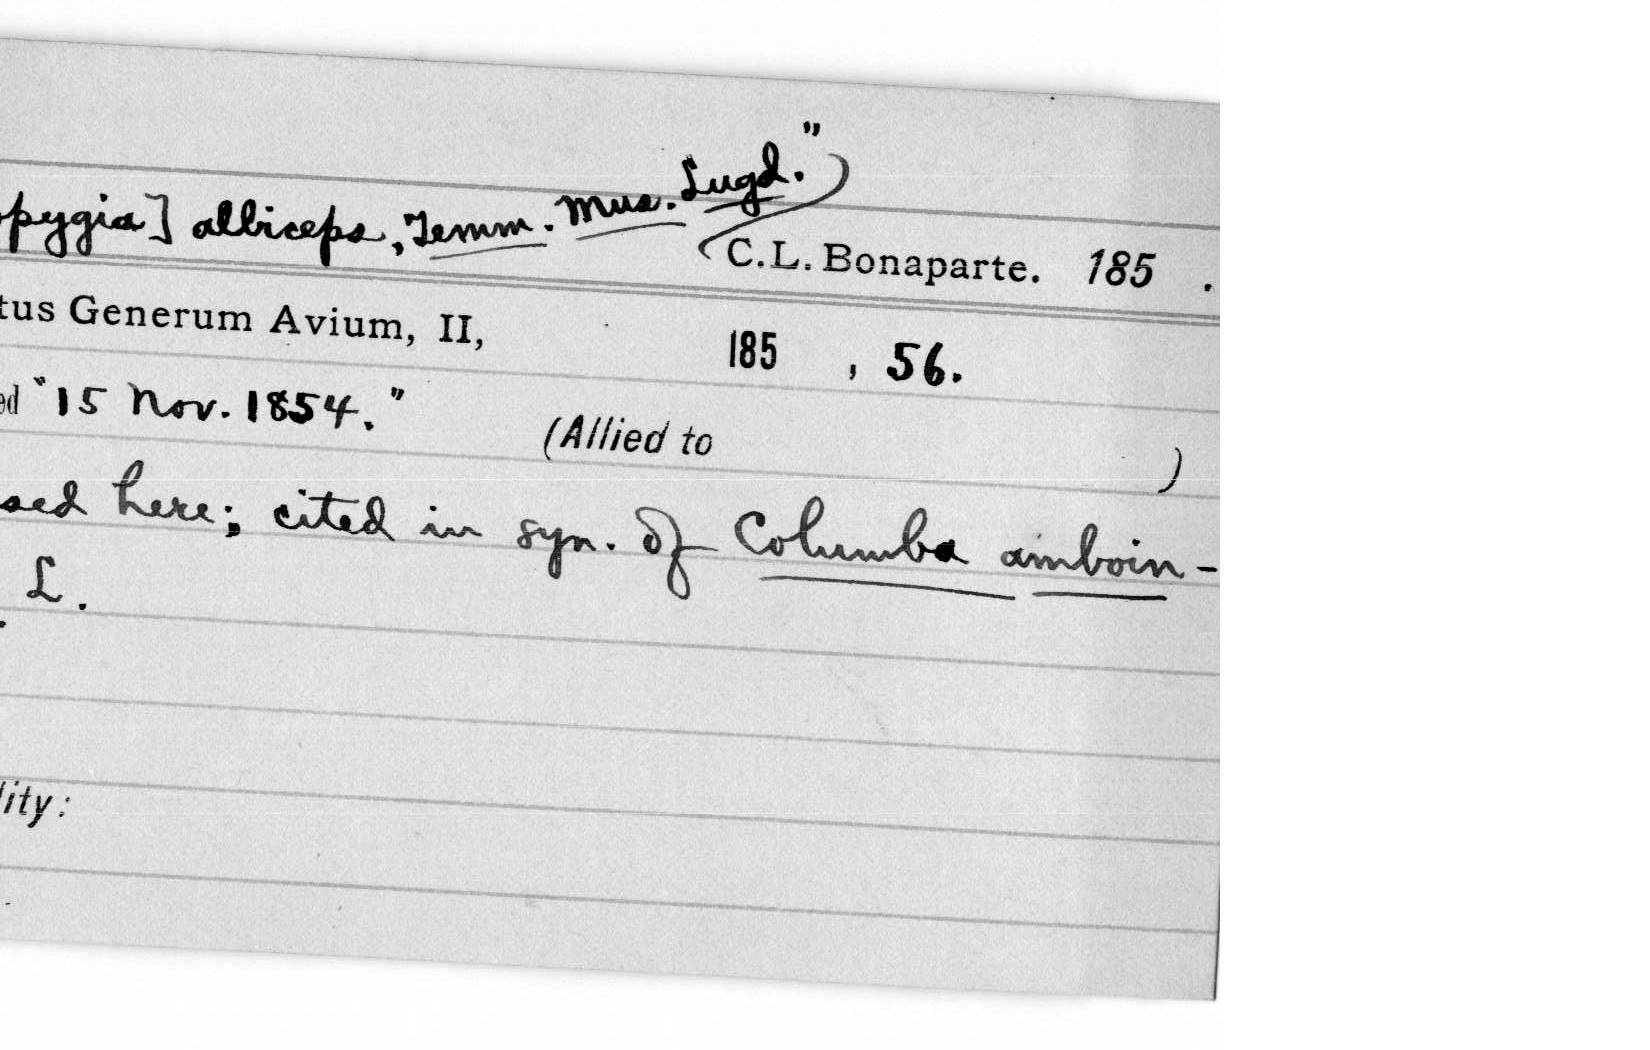 opygia] albiceps, Temm. Mus. Lugd.")
(C.L. Bonaparte. 185 .
tus Generum Avium, II, 185 , 56.
ed "15 Nov. 1854."
(Allied to )
sed here; cited in syn. of Columba amboin-
. L.
lity: